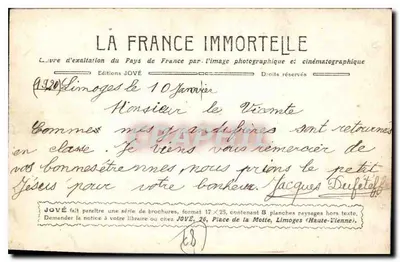 LA FRANCE IMMORTELLE
Œuvre d'exaltation du Pays de France par l'image photographique et cinématographique
Editions JOVÉ Droits réservés
Limoges le 10 Janvier
Monsieur le Vicomte
sont retournes
en classe. Je viens vous remercier de
vos bonnes étrennes, nous prions le petit
Jésus pour votre bonheur. Jacques
JOVÉ fait paraître une série de brochures, format 17 × 25, contenant 8 planches paysages hors texte.
Demander la notice à votre libraire ou chez JOVÉ, 26, Place de la Motte, Limoges (Haute-Vienne).